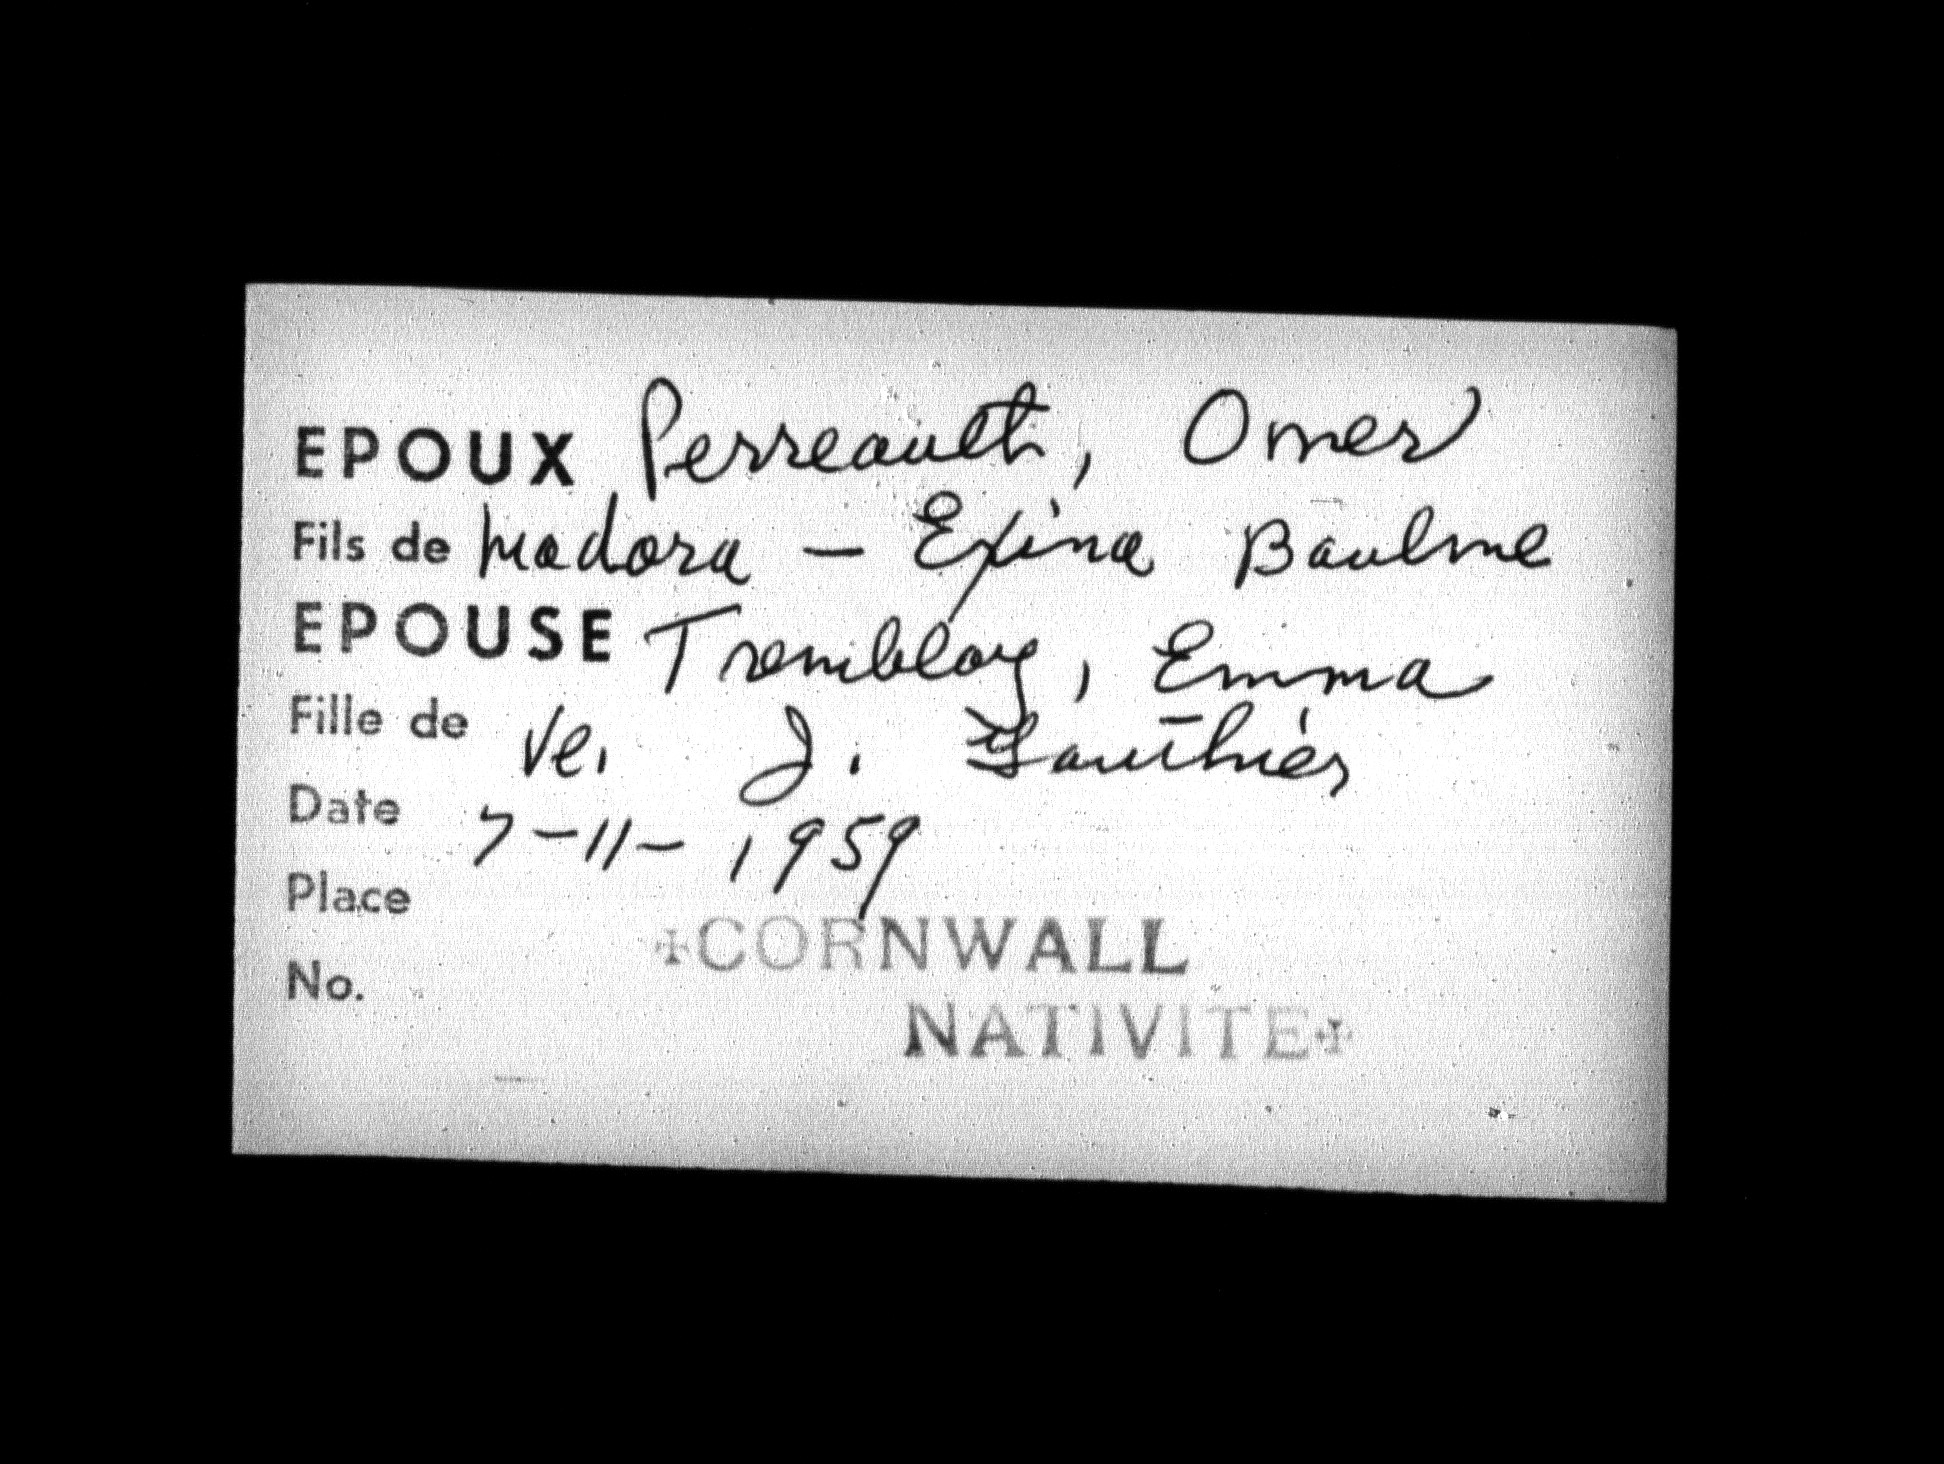 EPOUX Perreault, Omer
Fils de Madora - Exina Baulme
EPOUSE Tremblay, Emma
Fille de Ve. J. Gauthier
Date 7-11-1959
Place
CORNWALL
No.
NATIVITE